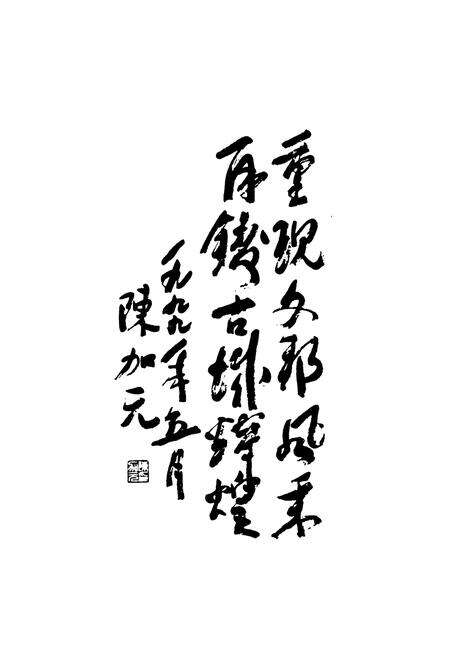 重現文邦風采
再鑄古城輝煌
一九九九年五月
陳加元